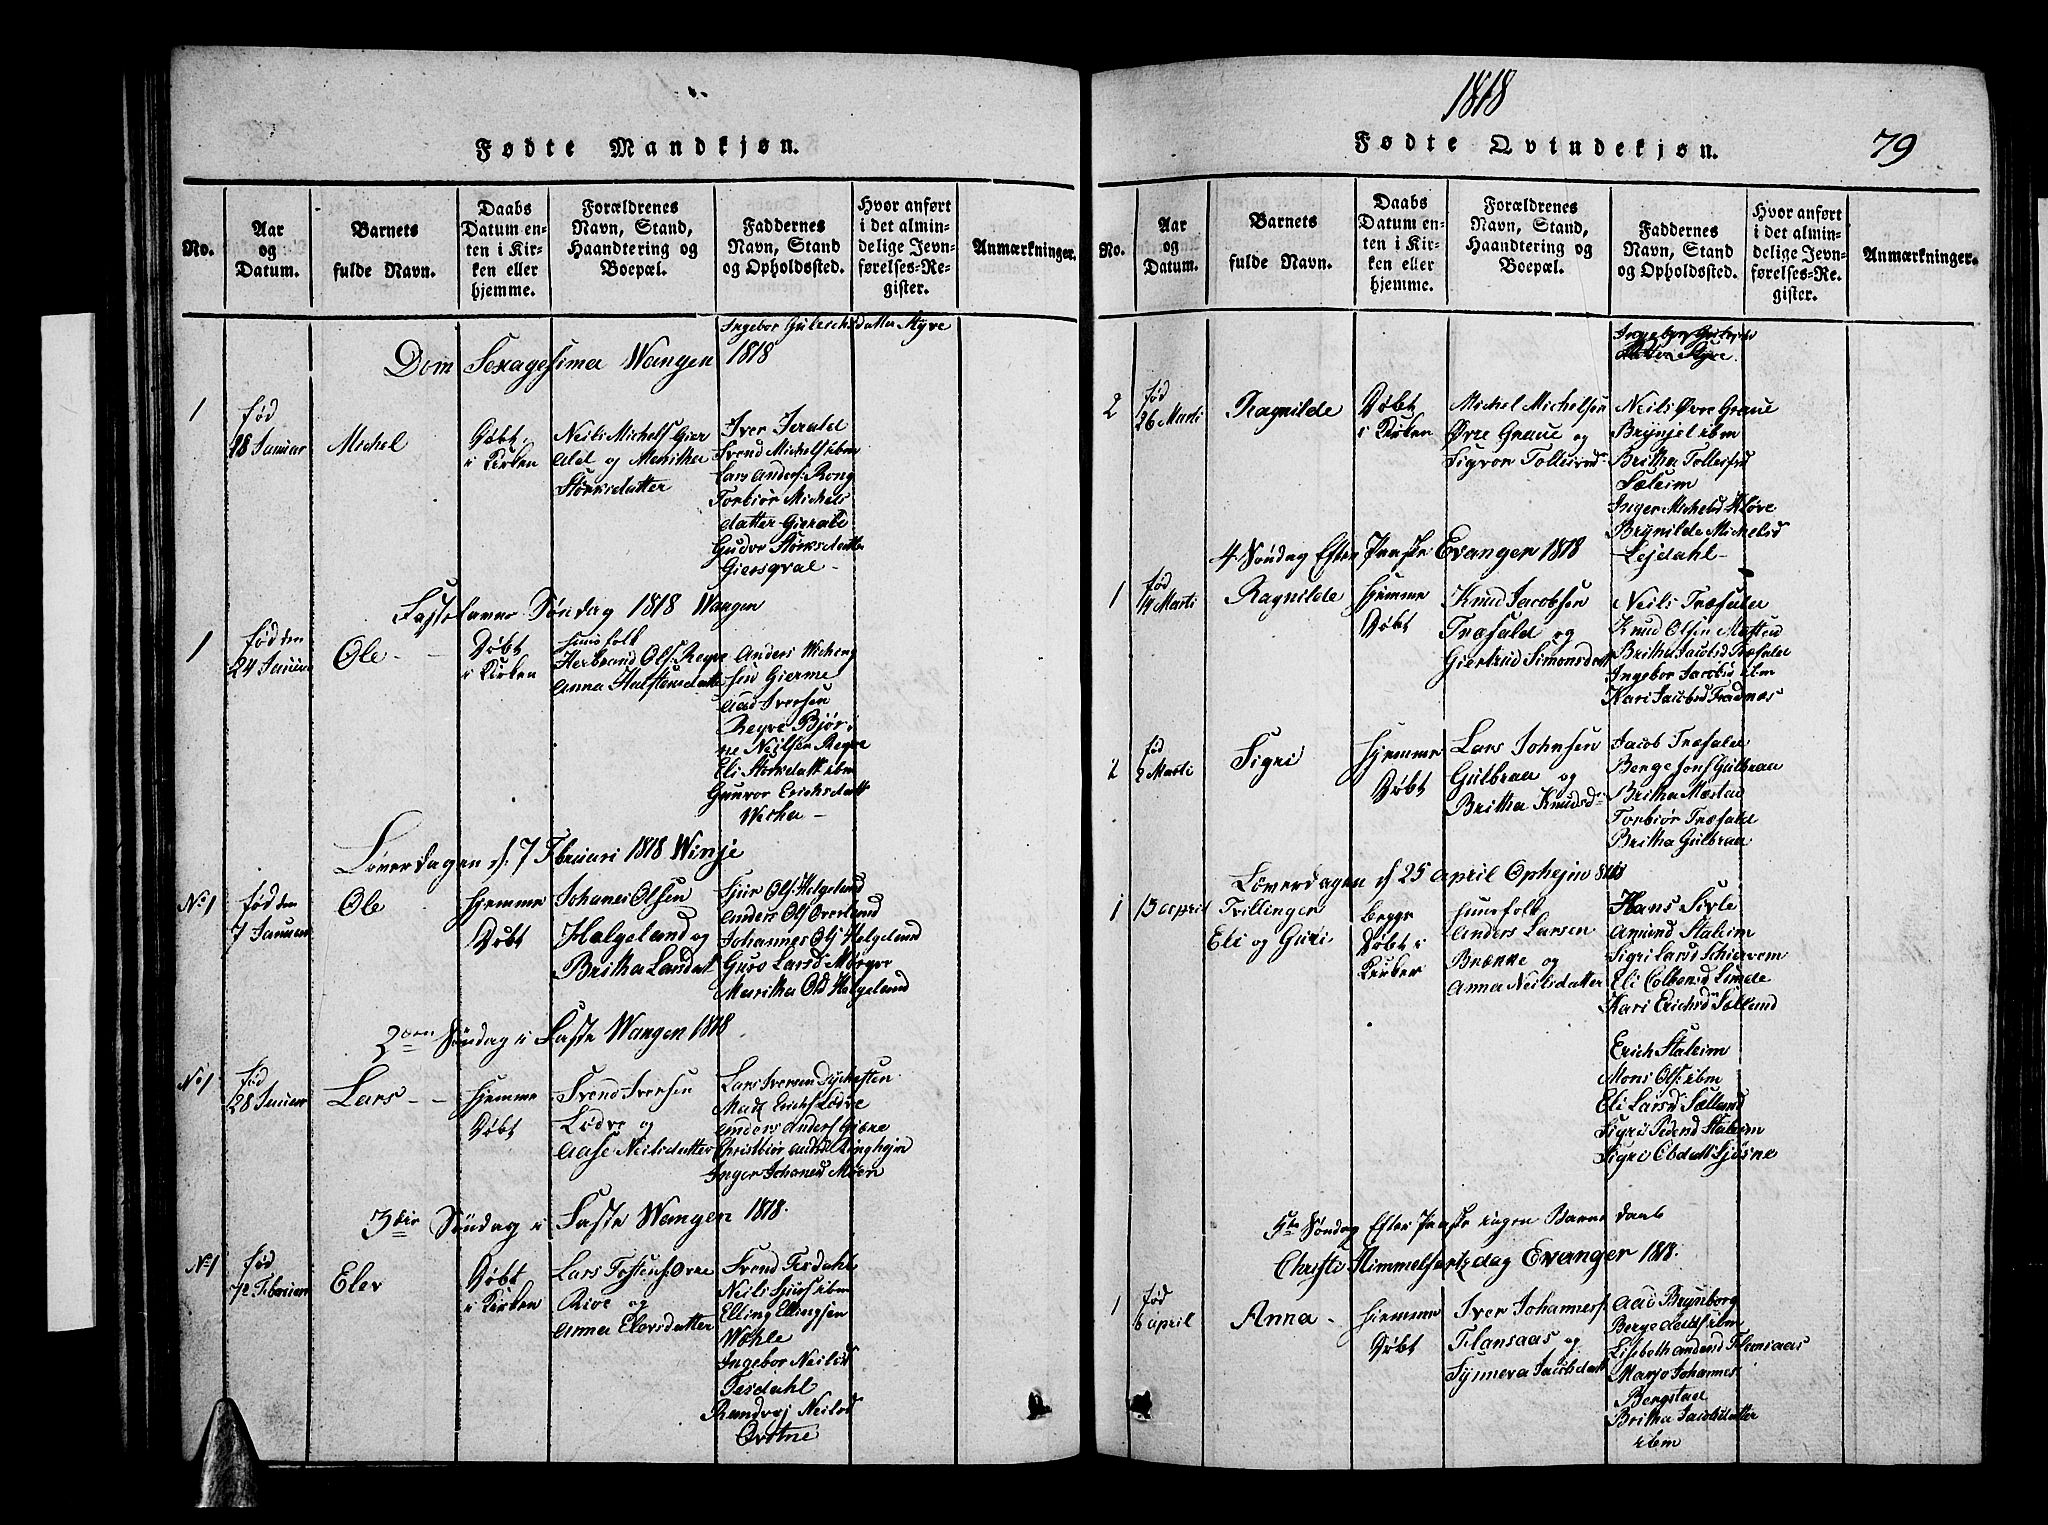 Fødte Mandkjøn.
No.
Aar
og
Datum.
Barnets
fulde Navn.
Daabs
Datum en-
ten i Kir-
ken eller
hjemme.
Forældrenes
Navn, Stand,
Haandtering og
Boepæl.
Faddernes
Navn, Stand
og Opholdssted.
Hvor anført
i det almin-
delige Jevn-
førelses-Re-
gister.
Anmærkninger.
Ingebor Gulleichsdatter Styve
Dom Sexagesima Wangen 1818
1
fød
18 Januar
Michel
Døbt
i Kirken
Neils Michels Gier
ald og Maritha
Størksdatter
Iver Ierald
Svend Michels ibm
Lars Anders: Rong
Torbiør Michels
datter Gierald
Gudve Størksdatter
Giersqval -
Fastelavns Søndag 1818 Wangen
1
Fød den
24 Januar
Ole
Døbt
i Kirken
Huusfolk
Herbrand Ols: Reqve
Anna Halstensdatter
Anders Wicheng
sen Gierme
Aad Iversen
Reqve Bjør
ne Neilsen Reqve
Eli Størksdatt ibm
Gunvor Erichsdatt
Løverdagen d. 7 Februari 1818 Winje
No 1
Fød den
7 Januar
Ole
Hjemme
Døbt
Johanes Olsen
Helgeland og
Britha Larsdatt
Siur Ols: Helgeland
Anders Ols Øverland
Johannes Ols Helgeland
Guro Larsd Mørqve
Maritha Olsd Helgeland
2den Søndag i Faste Wangen 1818
No 1
fød
28 Januar
Lars
Hjemme
Døbt
Svend Iversen
Lødve og
Aase Neilsdatter
Lars Iversen Dycchesten
Mads Erichs Lødve
Anders Anders Giære
Christbiør Andsd Ringhejm
Inger Johanesd Moen
3die Søndag i Faste Wangen 1818.
No 1
fød
12 Februar
Elev
Døbt
i Kirken
Lars Tostens: Øvre
Rioe og
Anna Elevsdatter
Svend Tesdahl
Neils Sjurs ibm
Elling Ellingsen
Wæhle
Ingebor Neilsd
Tesdahl
Randvej Neilsd
Qvitne
1818
79
Fødte Qvindekjøn.
No.
Aar
og
Datum.
Barnets
fulde Navn.
Daabs
Datum en-
ten i Kir-
ken eller
hjemme.
Forældrenes
Navn, Stand,
Haandtering og
Boepæl.
Faddernes
Navn, Stand
og Opholdssted.
Hvor anført
i det almin-
delige Jevn-
førelses-Re-
gister.
Anmærkninger.
2
fød
26 Marti
Ragnilde
Døbt
i Kirken
Michel Michelsen
Øvre Graue og
Sigvor Tolleivsd
Neils Øvre Graue
Brynjel ibm
Britha Tolleifsd
Sæleim
Inger Michelsd Kløve
Brynilde Michelsd
Lejdahl
4 Søndag Efter Paaske Evanger 1818
1
fød
14 Marti
Ragnilde
Hjemme
Døbt
Knud Jacobsen
Træfald og
Giertrud Simonsdatt
Neils Træfald
Knud Olsen Mæstad
Britha Jacobsd Træfald
Ingebor Jacobsd ibm
Kari Jacobsd Fadnæs
2
fød
2 Marti
Sigri
Hjemme
Døbt
Lars Johnsen
Gulbraa og
Britha Knudsd
Jacob Træfald
Berge Jons Gulbraa
Britha Mæstad
Torbiør Træfald
Britha Gulbraa
Løverdagen d 25 April Ophejm 1818
1
13 april
Tvillinger
Eli og Guri
Begge
Døbt i
Kirken
Huusfolk
Anders Larsen
Brække og
Anna Neilsdatter
Hans Sivle
Amund Staleim
Sigri Larsd Schiervem
Eli Colbensd Linde
Kari Erichsd Sælland
Erich Staleim
Mons Ols: ibm
Eli Larsd Sælland
Sigri Pedersd Staleim
Sigri Olsdatt Sjøsne
5te Søndag Efter Paaske ingen Barne daab
Christi Himmelfartsdag Evanger 1818.
1
fød
6 april
Anna
Hjemme
Døbt
Iver Johannes
Flansaas og
Synneva Jacobsdatt
Aad Brynborg
Berge Lassen ibm
Lisebeth Andersd Flansaas
Marjo Johannes
Bergstad
Britha Jacobsdatter
ibm